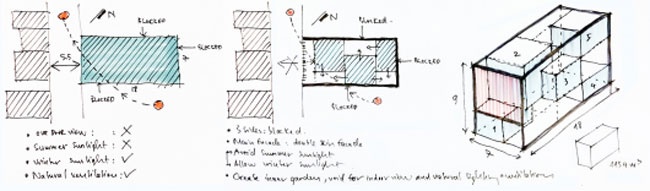 N
BLOCKED
BLOCKED
7
5.5
18
BLOCKED
Summer Sunlight : X
Winter Sunlight : ✓
Natural ventilation : ✓
N
BLOCKED
BLOCKED
BLOCKED
3 Sides: Blocked.
Main facade: double skin facade
Avoid summer sunlight
Allow winter sunlight
Create inner garden, void for indoor view and natural lighting, ventilation
2
5
3
4
1
9
7
18
1134 m³